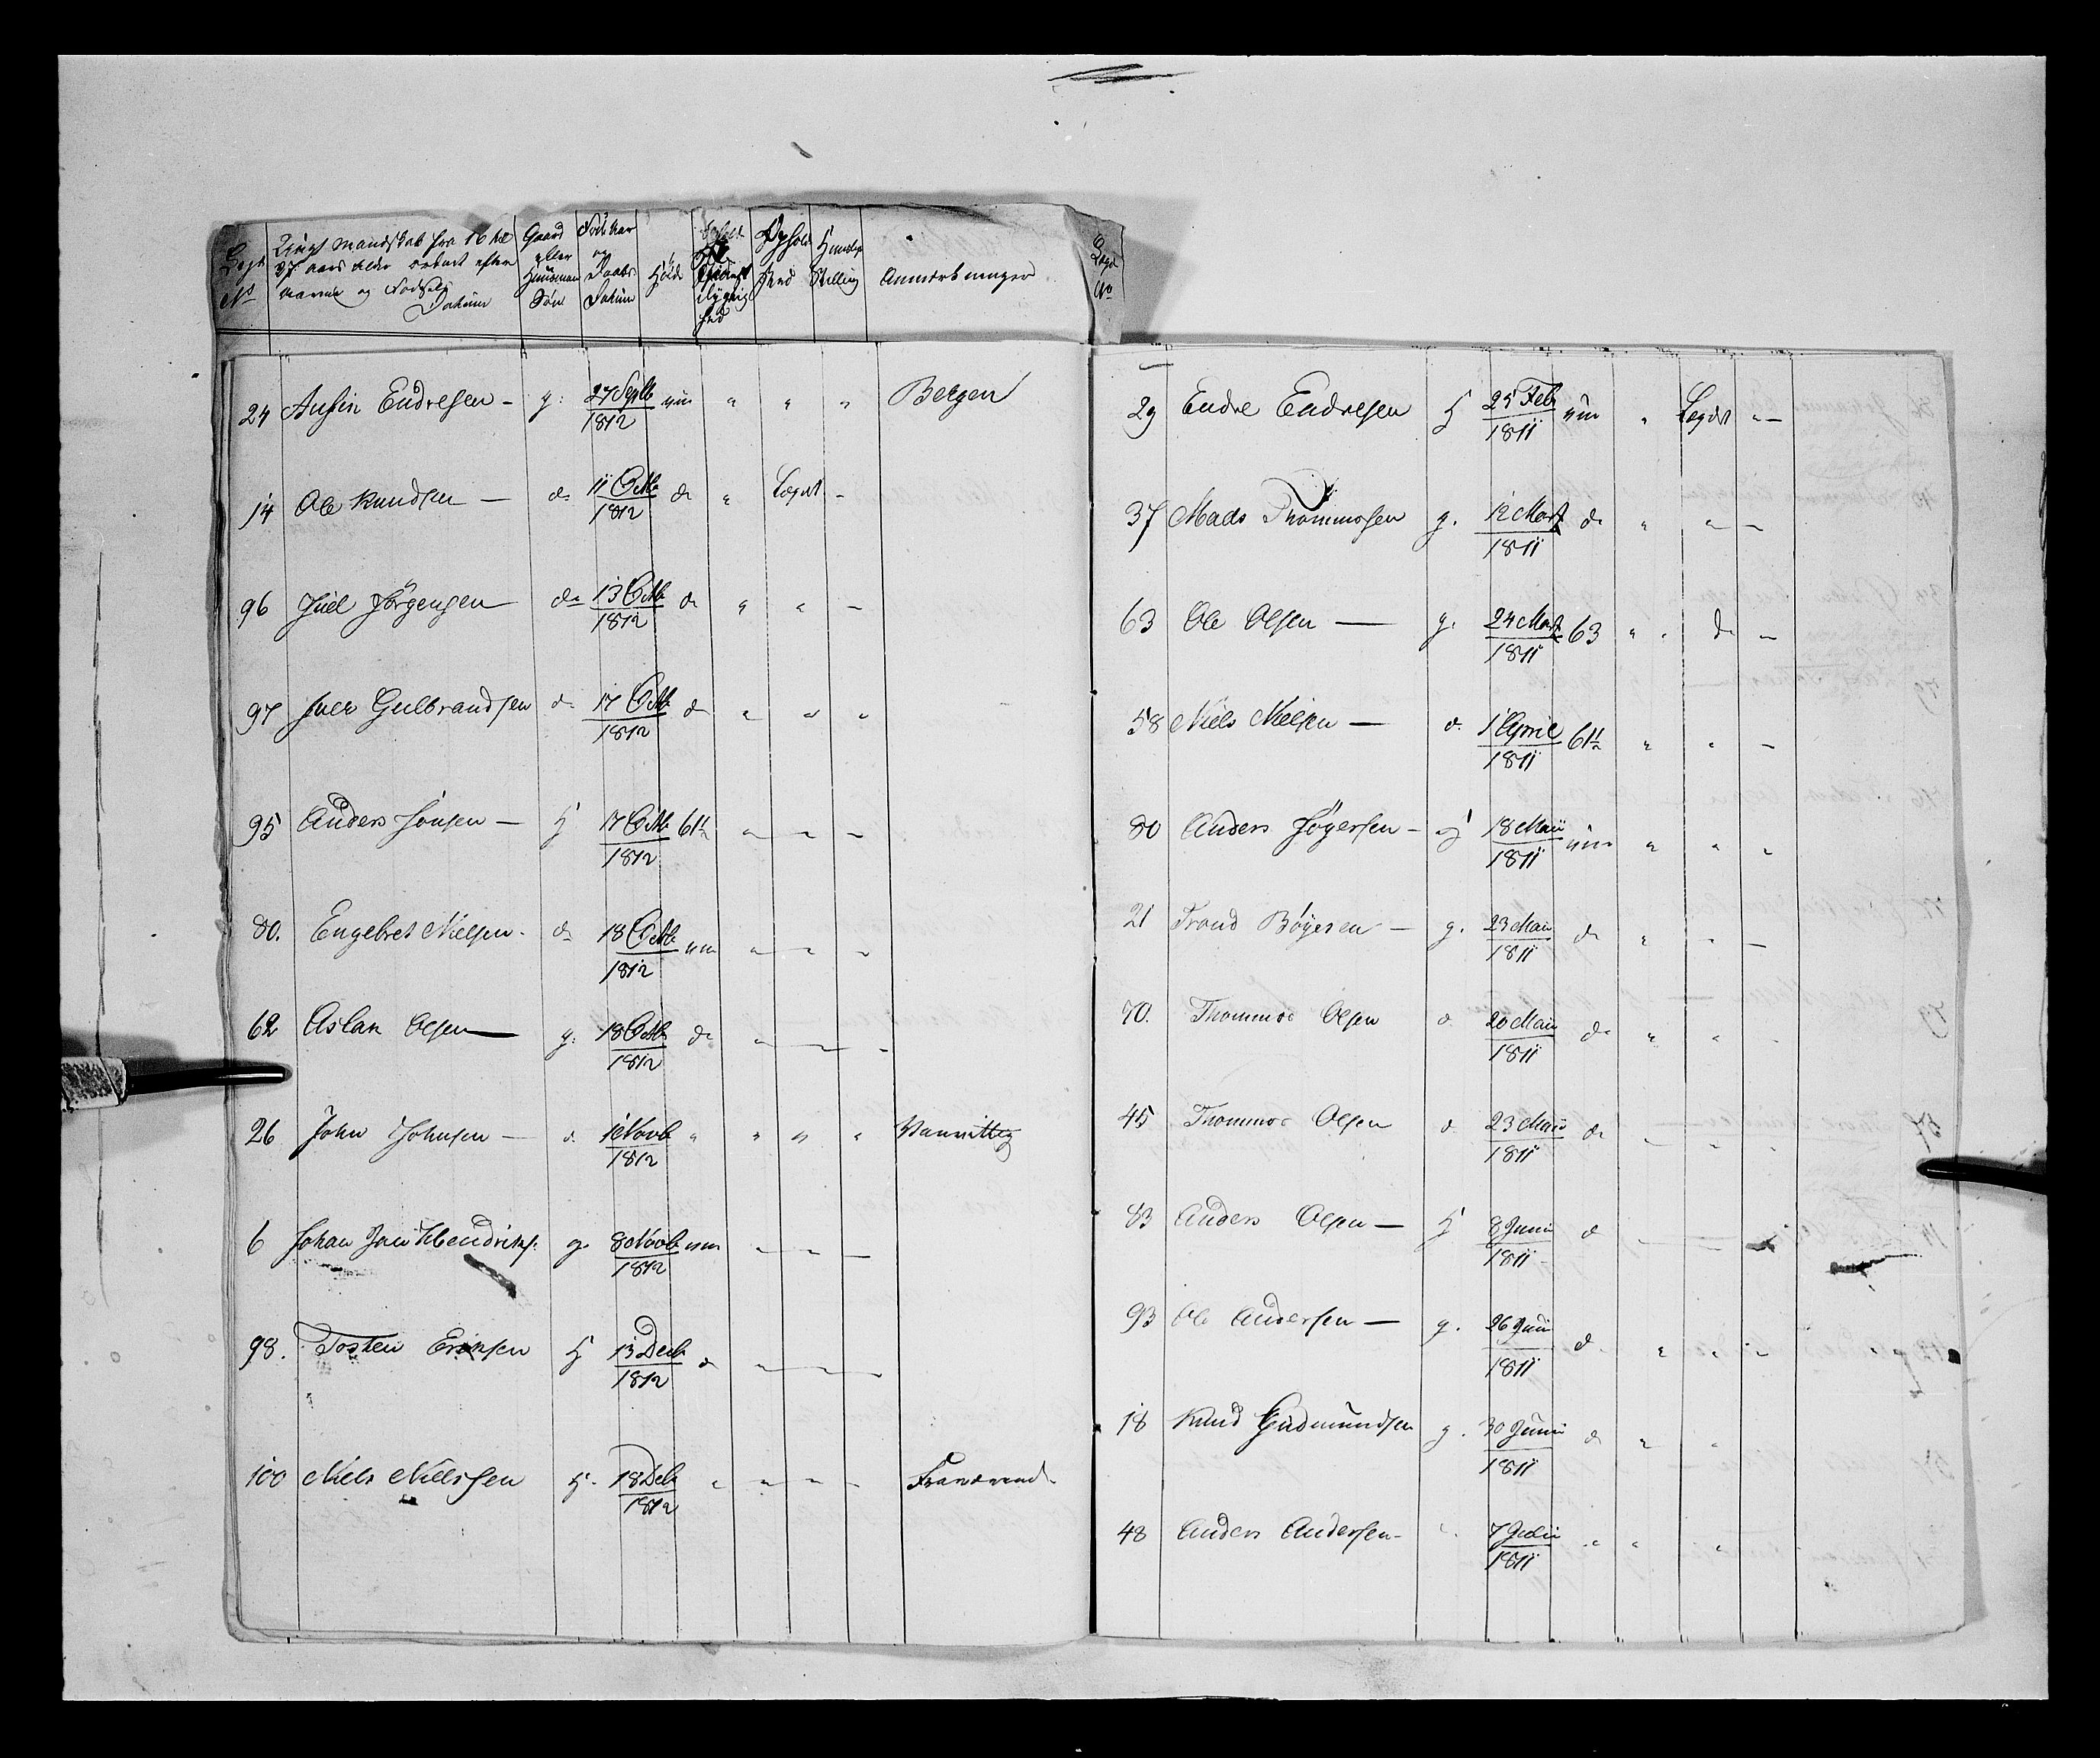 Legd No | Ungt Mandskab fra 16 til 37 aars Alder ordnet efter Navne og Fødsels Datum | Gaard eller Huusmans Søn | Føds aar og Daabs Datum | Høide | Ophold Sted | Huuslig Stilling | Anmerkninger | Legd No
24 Ansten Endresen – g: 27 Septb 1812 um " " " Bergen
14 Ole Knudsen — do 11 Octb 1812 do " Legdt –
96 Juel Jørgensen – do 13 Octb 1812 do " " –
97 Iver Gulbrandsen do 17 Octb 1812 do " " "
95 Anders Jonsen – H 17 Octb 1812 61½ " – –
80. Engebret Nielsen. do 18 Octb 1812 um " – –
62 Aslak Olsen — g: 18 Octb 1812 do " – –
26 John Johnsen — do 1 Novb 1812 " " " " Vanvittig
6 Johan Jan Hendriks: g. 8 Novb 1812 um – – –
98. Tosten Eriksen H 13 Decb 1812 do – – –
100 Niels Nielssen H. 18 Deb 1812 " " " – Fraværende
29 Endre Endresen H 25 Feb 1811 um " Legdt "–
37 Mads Thommesen g. 12 Mart 1811 do " " –
63 Ole Olsen — g. 24 Mart 1811 63 " " do –
58 Niels Nielsen — do 1 April 1811 61½ " " –
80 Anders Jøgersen – H 18 Maii 1811 um " " "
21 Trond Bøyesen – g. 23 Maii 1811 do " " –
70. Thommas Olsen do 20 Maii 1811 do " " –
45 Thommas Olsen do 23 Maii 1811 do – " "
83 Anders Olsen — H 8 Juni 1811 do – –
93 Ole Andersen — g. 26 Juni 1811 do " " "
18 Knud Gudmundsen g. 30 Juni 1811 do " "
48 Anders Andersen – " 7 Julii 1811 " " "